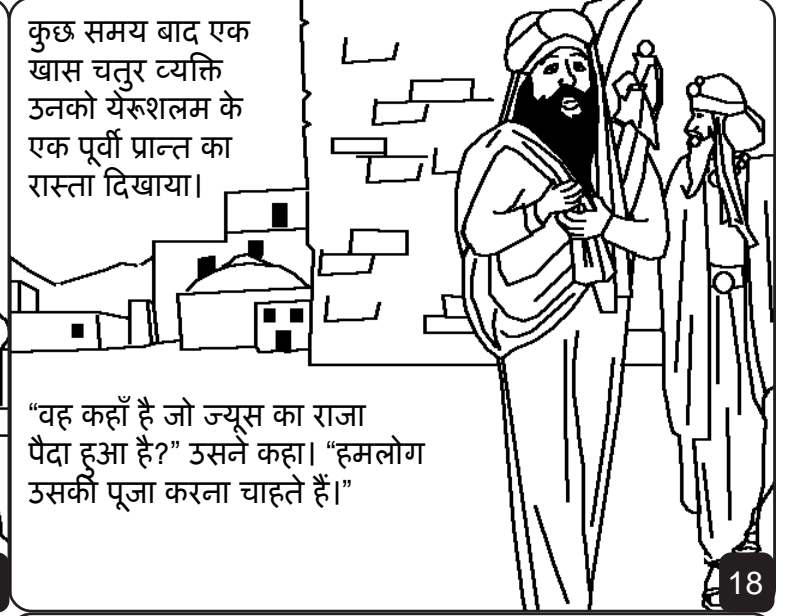 कुछ समय बाद एक
खास चतुर व्यक्ति
उनको येरूशलम के
एक पूर्वी प्रान्त का
रास्ता दिखाया।
“वह कहाँ है जो ज्यूस का राजा
पैदा हुआ है?” उसने कहा। “हमलोग
उसकी पूजा करना चाहते हैं।”
18